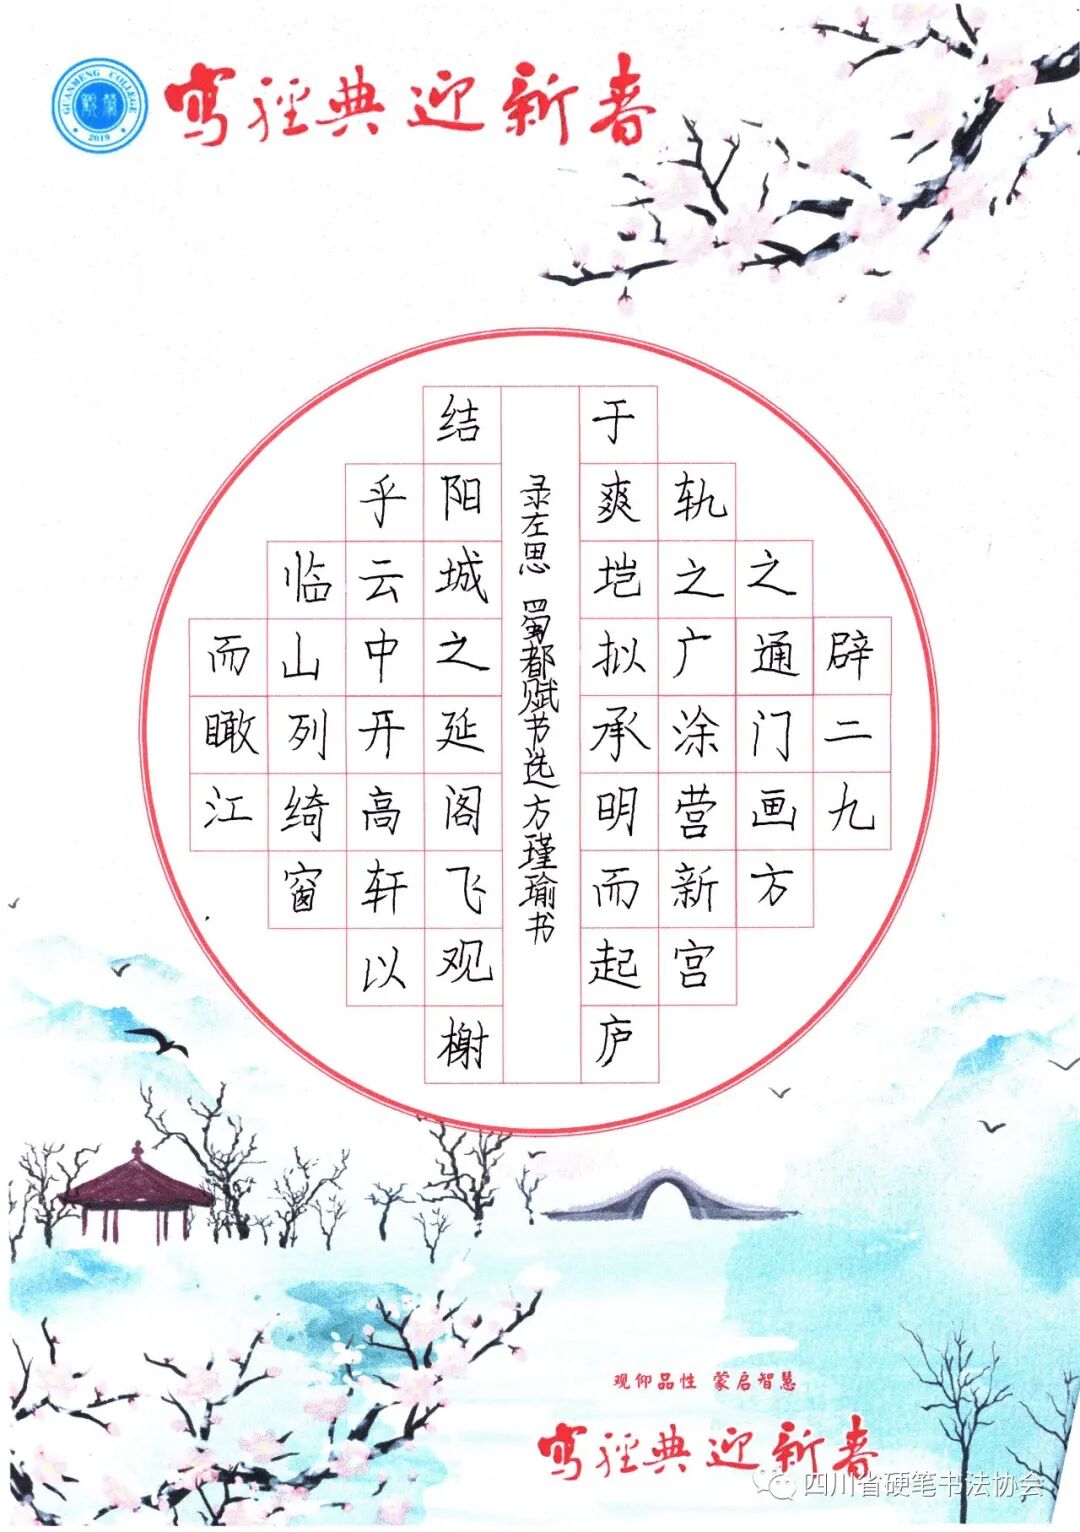 GUANMENG COLLEGE
2019
写经典迎新春
辟二九
之通门画方
轨之广涂营新宫
于爽垲拟承明而起庐
录左思 蜀都赋节选 方瑾瑜书
结阳城之延阁飞观榭
乎云中开高轩以
临山列绮窗
而瞰江
观仰品性 蒙启智慧
写经典迎新春
四川省硬笔书法协会